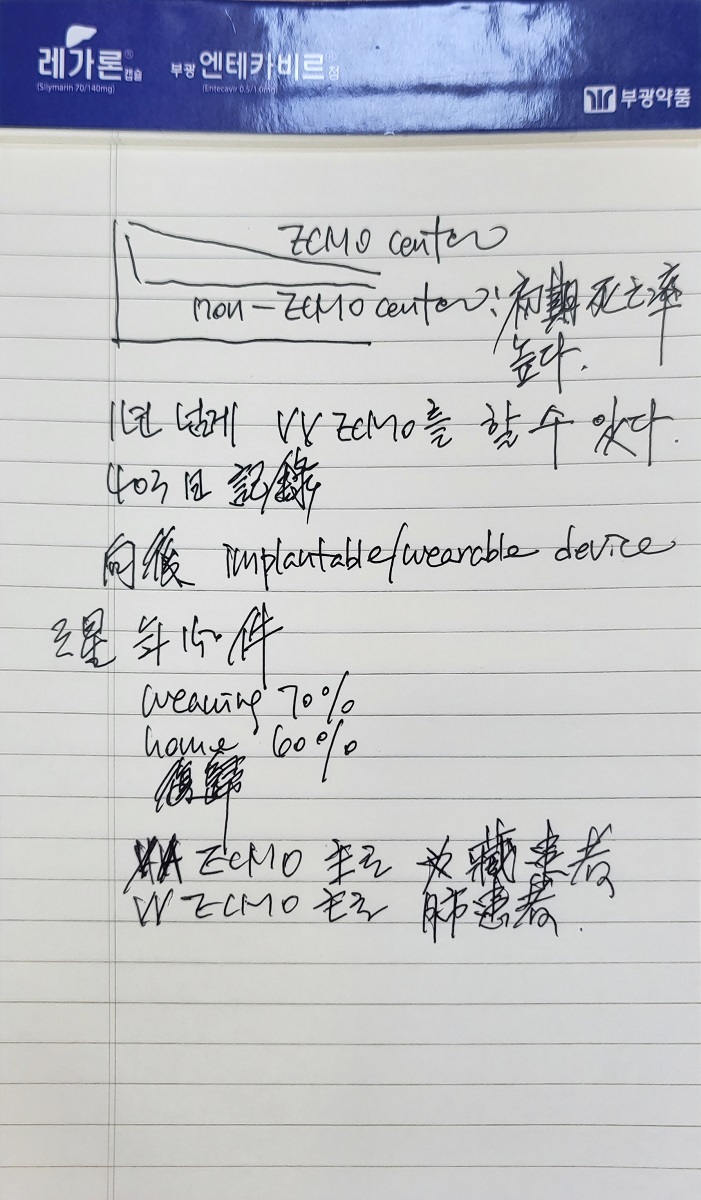 레가론® 캡슐
(Silymarin 70/140mg)
부광 엔테카비르® 정
(Entecavir 0.5/1.0mg)
부광약품
ECMO center
non-ECMO center: 初期死亡率
높다.
1년 넘게 VV ECMO를 할 수 있다.
403日 記錄
向後 implantable/wearable device
三星 年 件
weaning 70%
home 60%
復歸
ECMO 主로 心臟患者
VV ECMO 主로 肺患者.